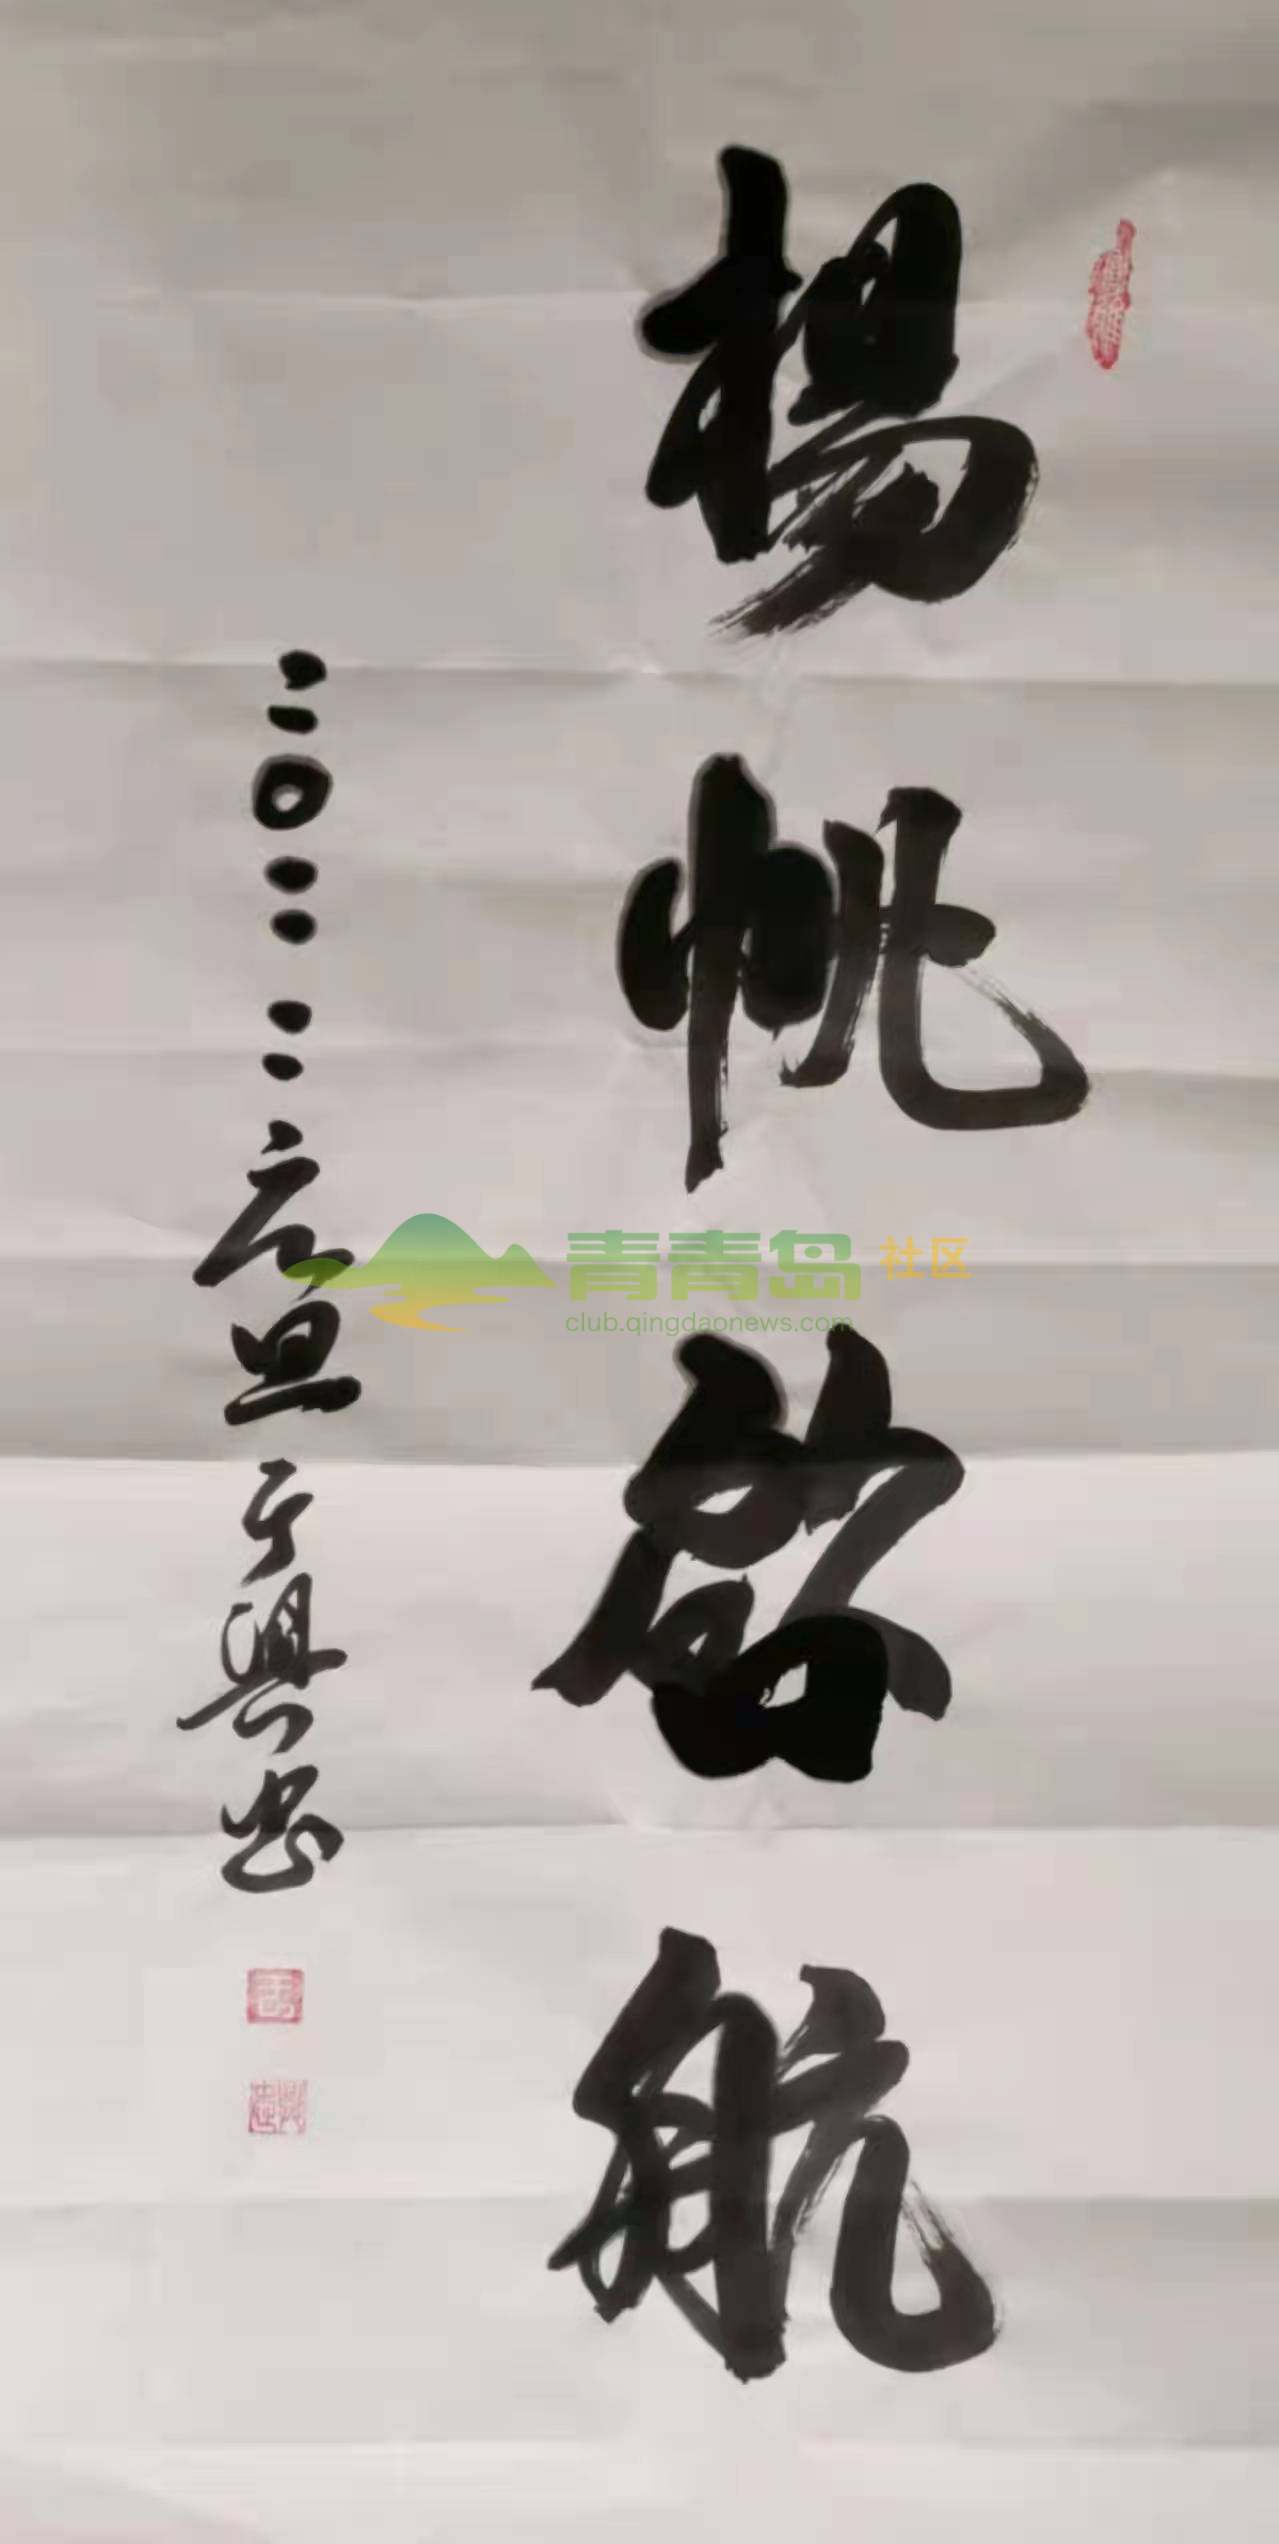 揚帆啓航
二〇二二元旦于興忠
青青岛社区
club.qingdaonews.com